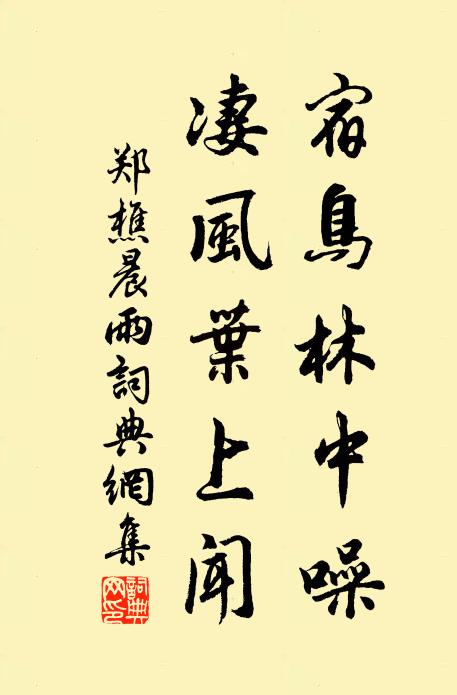 宿鳥林中噪
凄風葉上聞
郑樵晨雨詞典網集
詞典
网印